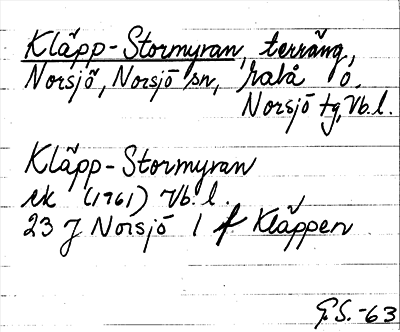 Kläpp-Stormyran, terräng,
Norsjö, Norsjö sn, Malå o.
Norsjö tg, Vb.l.
Kläpp-Stormyran
ek (1961) Vb. l.
23 J Norsjö 1 f Kläppen
G.S. -63